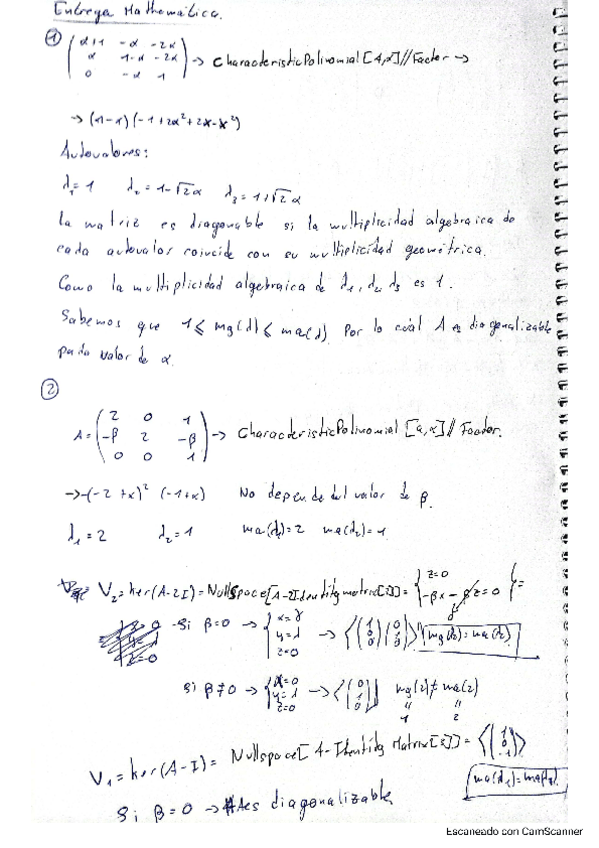 Entrega Mathematica.
① ( α+1 -α -2α
α 1-α -2α
0 -α 1 ) → CharacteristicPolinomial [A,x] // Factor →
→ (1-x) (-1+2α²+2x-x²)
Autovalores:
λ₁=1 λ₂=1-√2α λ₃=1+√2α
La matriz es diagonable si la multiplicidad algebraica de
cada autovalor coincide con su multiplicidad geométrica.
Como la multiplicidad algebraica de λ₁, λ₂, λ₃ es 1.
Sabemos que 1 ≤ mg(λ) ≤ ma(λ). Por lo cuál A es diagonalizable
valor de α.
②
A = ( 2 0 1
-β 2 -β
0 0 1 ) → CharacteristicPolinomial [a,x] // Factor.
→ -(-2+x)² (-1+x) No depende del valor de β.
λ₁=2 λ₂=1 ma(λ₁)=2 ma(λ₂)=1
V₂ = ker(A-2I) = NullSpace[A-2Identitymatrix[3]] = { z=0
-βx - βz=0 } =
-Si β=0 → { x=γ
y=λ
z=0 → <(1 0 0) (0 1 0)> mg(λ₁)=ma(λ₁)
Si β≠0 → { x=0
y=λ
z=0 → <(0 1 0)> mg(2)≠ma(2)
1 2
V₁ = ker(A-I) = Nullspace[A-Identity Matrix[3]] = <(1 0 -1)>
Si β=0 → A es diagonalizable
Escaneado con CamScanner